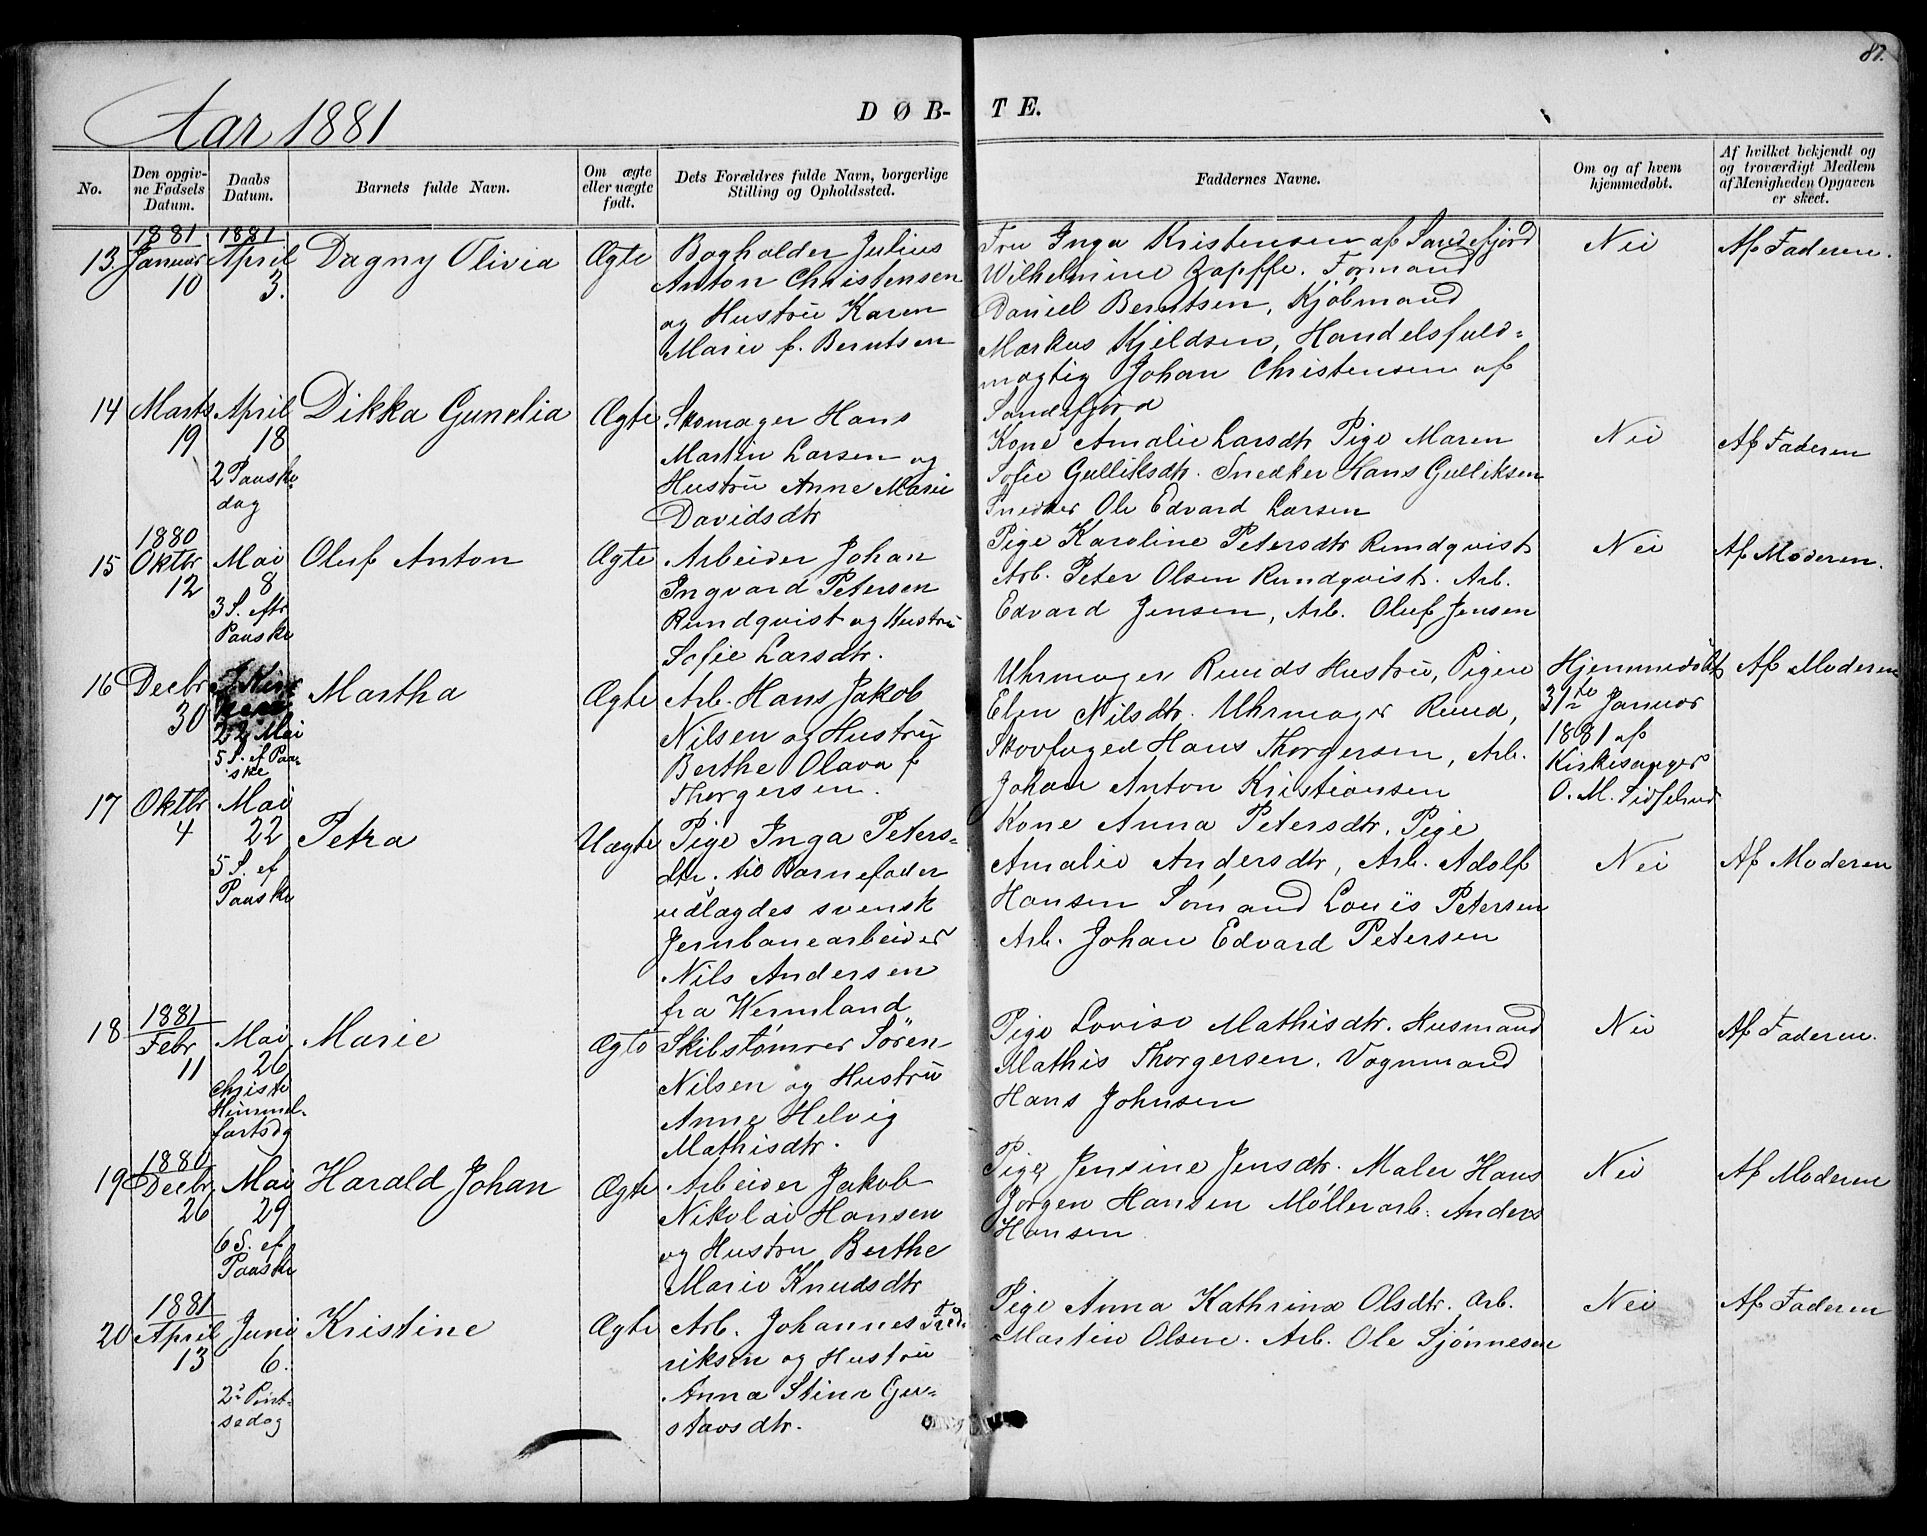 87.
Aar 1881
DØB-TE.
No.
Den opgiv-
ne Fødsels
Datum.
Daabs
Datum.
Barnets fulde Navn.
Om ægte
eller uægte
født.
Dets Forældres fulde Navn, borgerlige
Stilling og Opholdssted.
Faddernes Navne.
Om og af hvem
hjemmedøbt.
Af hvilket bekjendt og
og troværdigt Medlem
af Menigheden Opgaven
er skeet.
13.
1881
Januar
10
1881
April
3.
Dagny Olivia
Ægte
Bogholder Julius
Anton Christensen
og Hustru Karen
Marie f. Berntsen
Fru Inga Kristensen af Sandefjord
Wilhelmine Zapffe. Formand
Daniel Berntsen, Kjöbmand
Markus Kjeldsen, Handelsfuld-
mægtig Johan Christensen af
Sandefjord
Nei
Af Faderen.
14
Marts
19
April
18
2 Paaske
dag
Dikka Gunelia
Ægte
Skomager Hans
Martin Larsen og
Hustru Anne Marie
Davidsdtr
Kone Amalie Larsdtr Pige Maren
Sofie Gulliksdtr. Snedker Hans Gulliksen
Snedker Ole Edvard Larsen
Nei
Af Faderen
15
1880
Oktbr
12
Mai
8
3 S. eftr
Paaske
Oluf Anton
Ægte
Arbeider Johan
Ingvard Petersen
Rundqvist og Hustru
Sofie Larsdtr.
Pige Karoline Petersdtr Rundqvist
Arb. Peter Olsen Rundqvist. Arb.
Edvard Jensen, Arb. Oluf Jensen
Nei
Af Moderen.
16
Decbr
30
22 Mai
5 S. ef Paa-
ske
Martha
Ægte
Arb. Hans Jakob
Nilsen og Hustru
Berthe Olava f
Thorgersen.
Uhrmager Ruuds Hustru, Pigen
Elen Nilsdtr. Uhrmager Ruud,
Skovfoged Hans Thorgersen, Arb.
Johan Anton Kristiansen
Hjemmedöbt
31te Januar
1881 af
Kirkesanger
O. M.
Af Moderen
17
Oktbr
4
Mai
22
5 S. ef
Paaske
Petra
Uægte
Pige Inga Peters-
dtr. til Barnefader
udlægdes svensk
Jernbanearbeider
Nils Andersen
fra Wermland
Kone Anna Petersdtr. Pige
Amalie Andersdtr, Arb. Adolf
Hansen Sømand Louis Petersen
Arb. Johan Edvard Petersen
Nei
Af Moderen
18
1881
Febr
11
Mai
26
Christi
Himmel-
fartsdg
Marie
Ægte
Skibstømrer Sören
Nilsen og Hustru
Anne Helvig
Mathisdtr.
Pige Lovise Mathisdtr. Husmand
Mathis Thorgersen. Vognmand
Hans Johnsen
Nei
Af Faderen.
19
1880
Decbr
26
Mai
29
6 S. ef
Paaske
Harald Johan
Ægte
Arbeider Jakob
Nikolai Hansen
og Hustru Berthe
Marie Knudsdtr
Pige Jensine Jensdtr. Maler Hans
Jörgen Hansen Møllerarb. Anders
Hansen
Nei
Af Moderen
20
1881
April
13
Juni
6.
2den Pint-
sedag
Kristine
Ægte
Arb. Johannes Fred-
riksen og Hustru
Anna Stina Gu-
stavsdtr.
Pige Anna Kathrina Olsdtr. Arb.
Martin Olsen. Arb. Ole Sjønnesen
Nei
Af Faderen